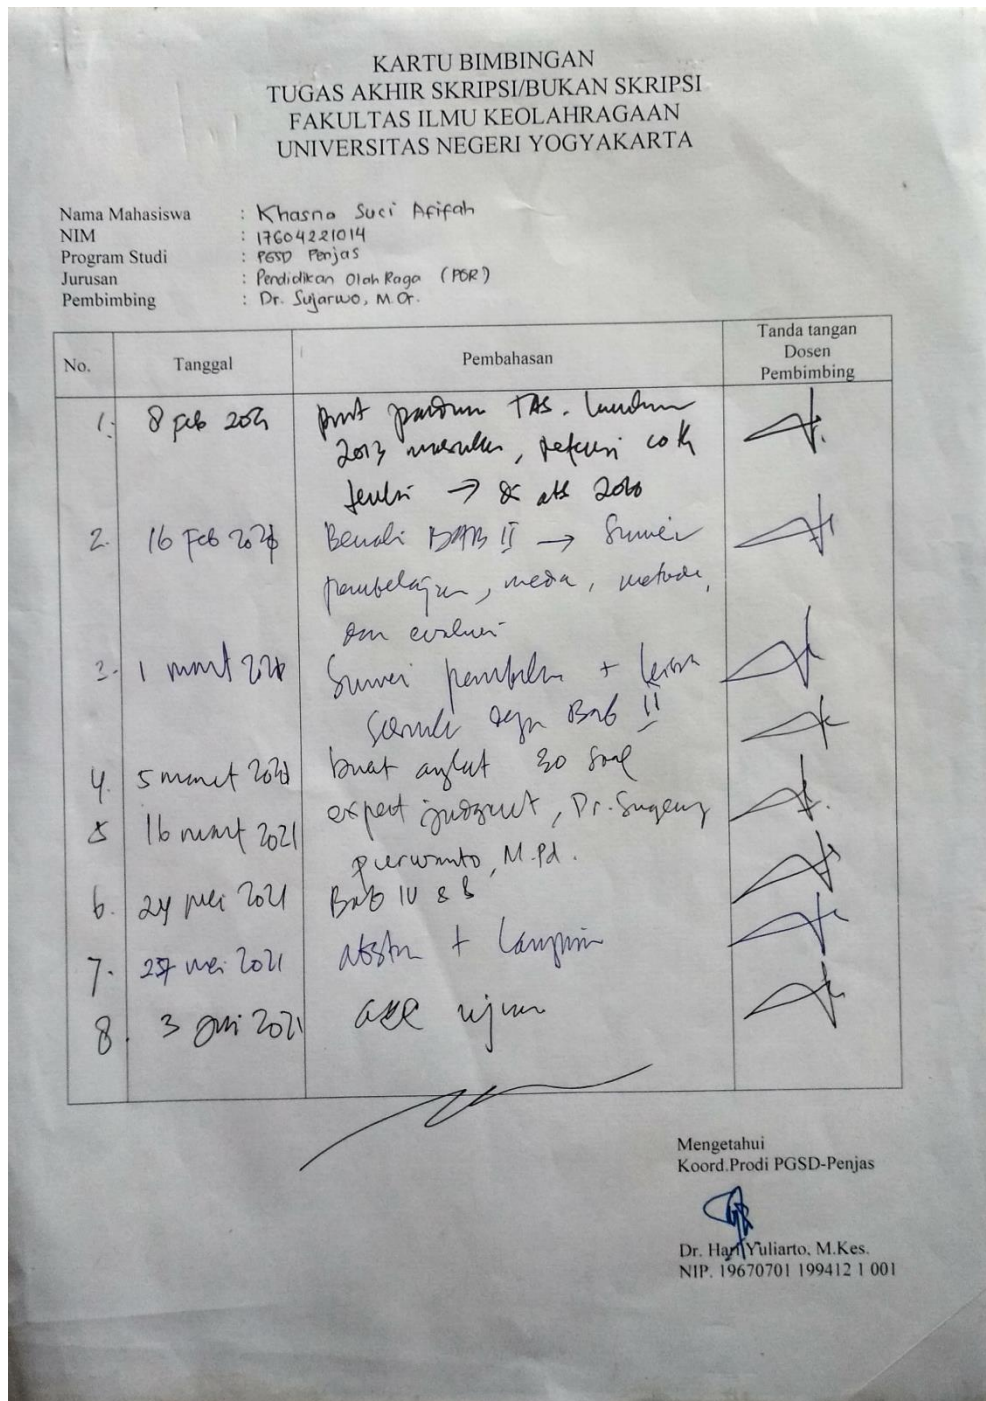 KARTU BIMBINGAN
TUGAS AKHIR SKRIPSI/BUKAN SKRIPSI
FAKULTAS ILMU KEOLAHRAGAAN
UNIVERSITAS NEGERI YOGYAKARTA
Nama Mahasiswa : Khasna Suci Afifah
NIM : 17604221014
Program Studi : PGSD Penjas
Jurusan : Pendidikan Olah Raga (POR)
Pembimbing : Dr. Sujarwo, M.Or.
No. Tanggal Pembahasan Tanda tangan
Dosen
Pembimbing
1. 8 Feb 2021 TAS.
2013
→ 2010
2. 16 Feb 2021 BAB II →
pembelajaran, media, metode,
dan evaluasi
3. 1 maret 2021 +
Bab II
4. 5 maret 2021 buat angket 30 soal
5 16 maret 2021 expert judgment, Dr. Sugeng
purwanto, M.Pd.
6. 24 mei 2021 Bab IV & 5
7. mei 2021 abstrak + Lampiran
8. 3 2021 acc ujian
Mengetahui
Koord.Prodi PGSD-Penjas
Dr. Hari Yuliarto, M.Kes.
NIP. 19670701 199412 1 001